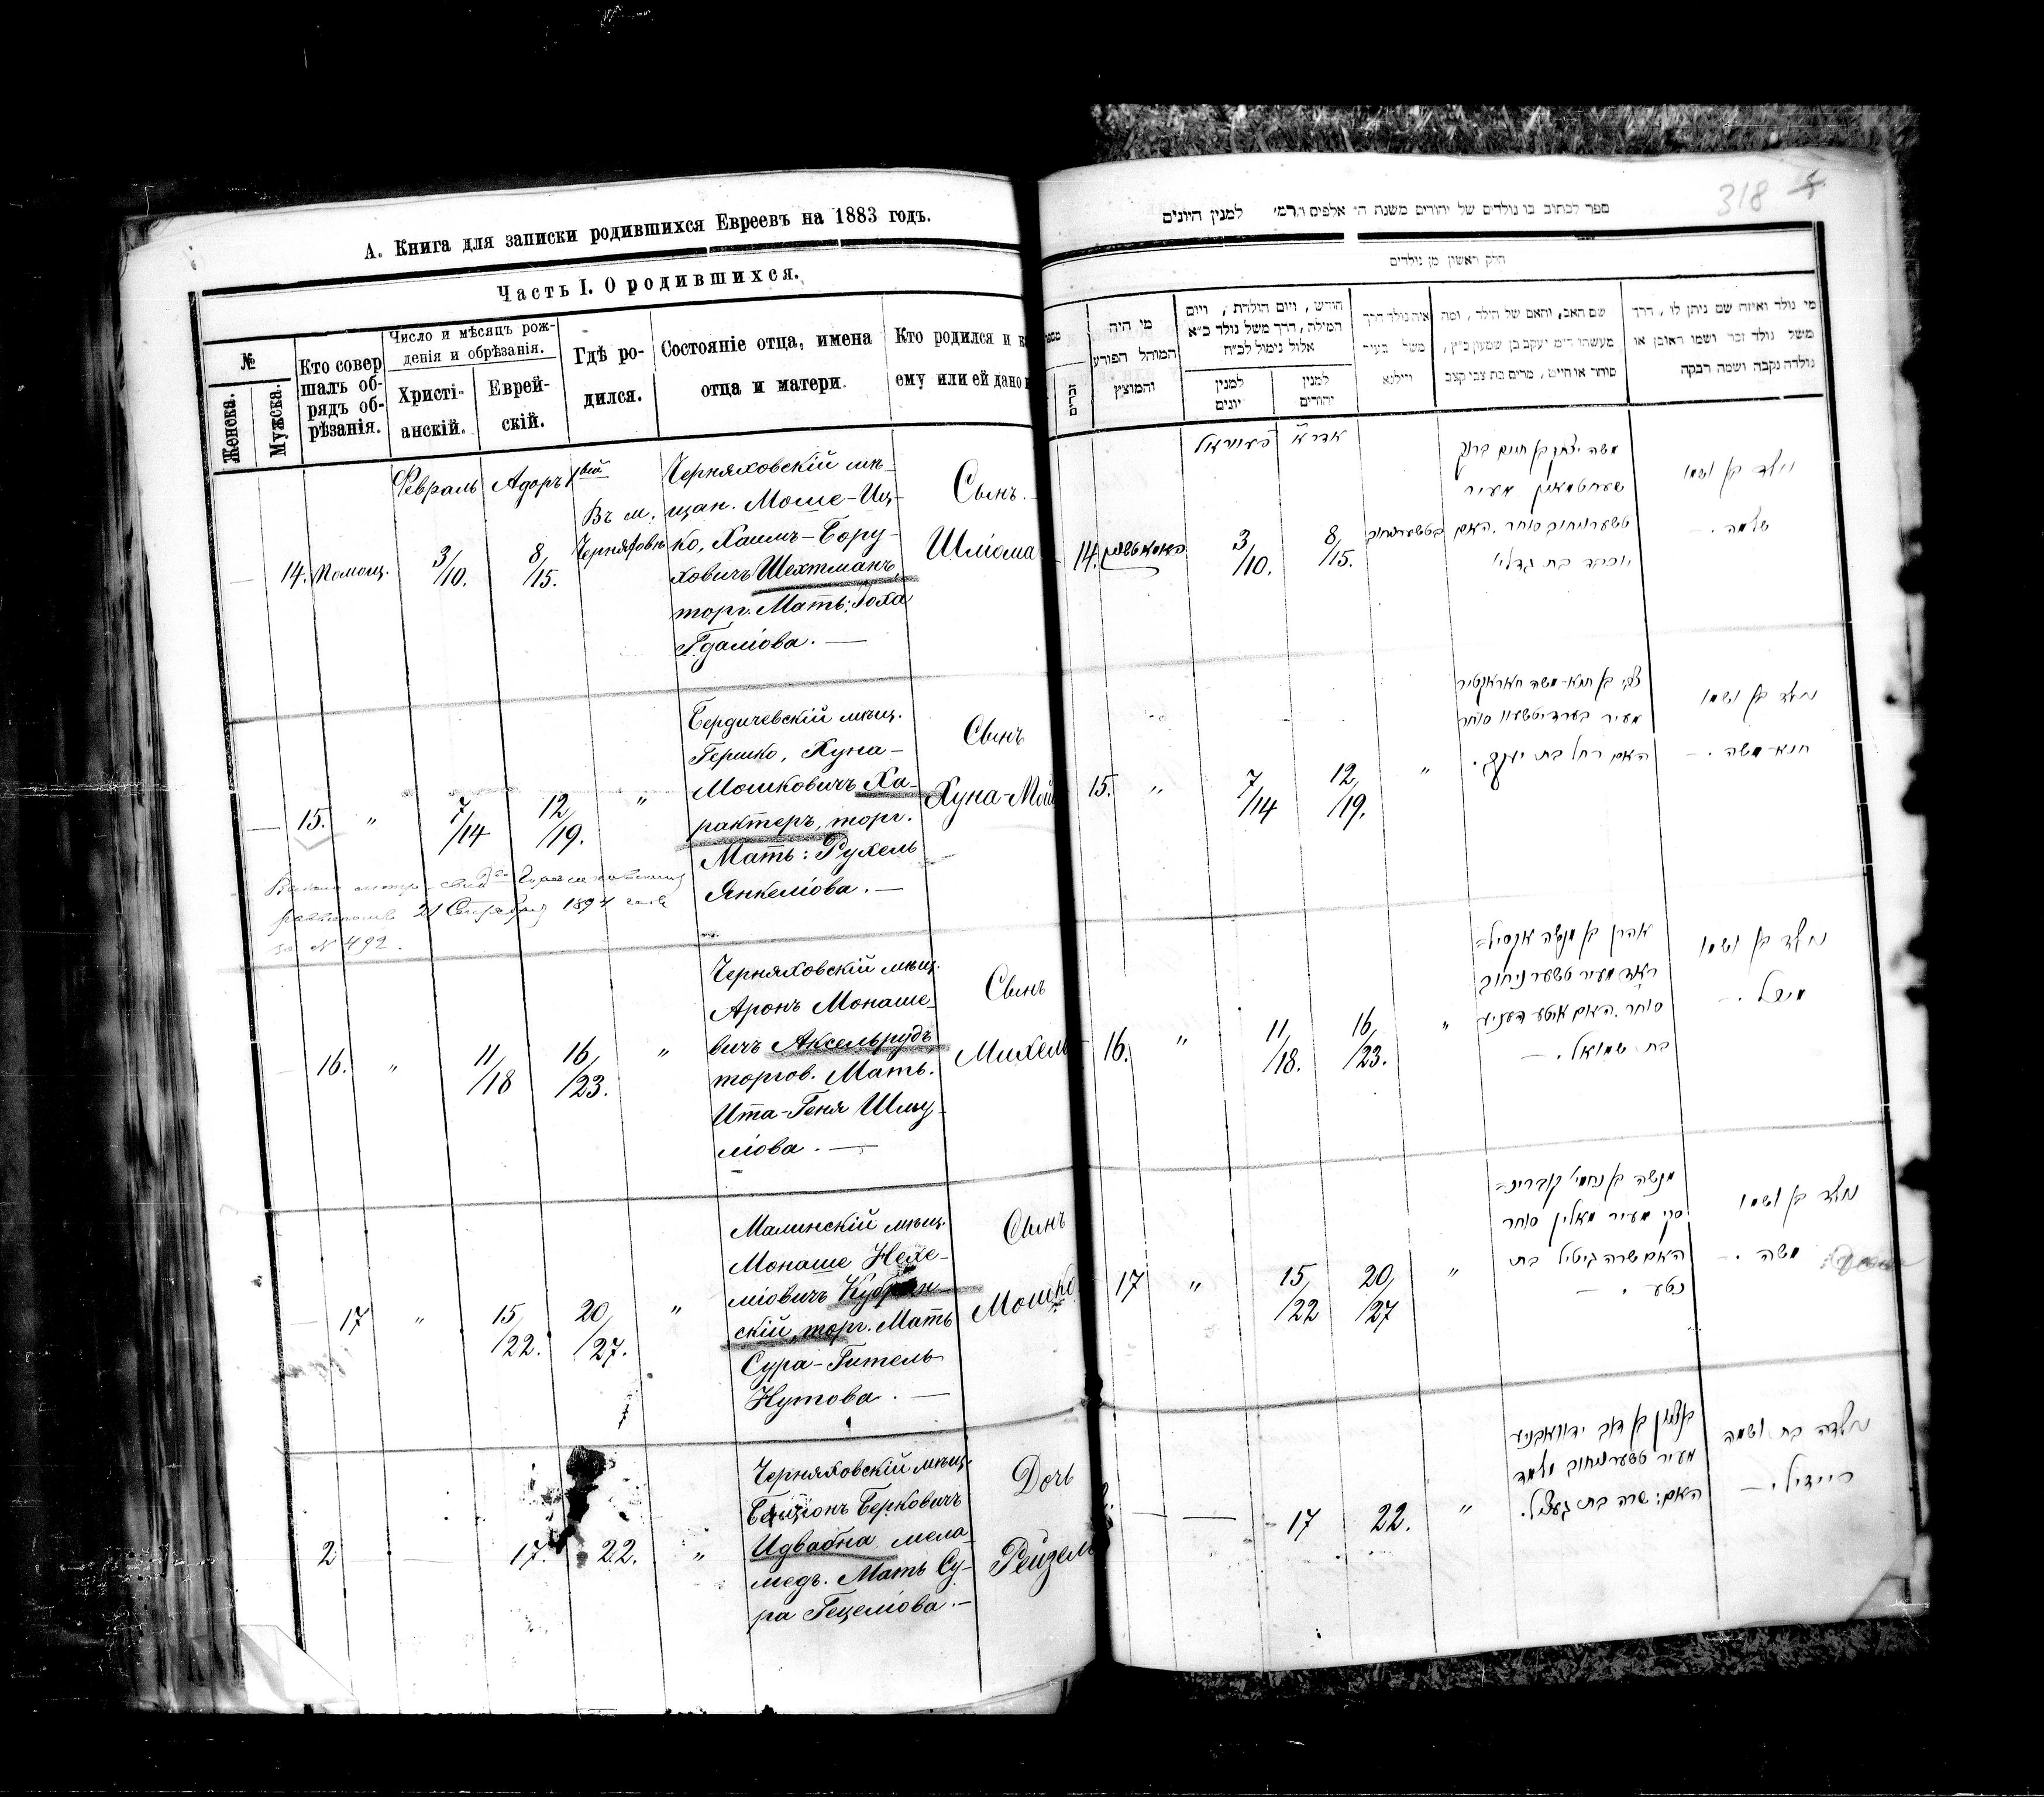 А. Книга для записки родившихся Евреевъ на 1883 годъ.
Часть I. О родившихся.
№
Женска.
Мужска.
Кто совер
шалъ об-
рядъ об-
рѣзанія.
Число и мѣсяцъ рож-
денія и обрѣзанія.
Христі-
анскій.
Еврей-
скій.
Гдѣ ро-
дился.
Состояніе отца, имена
отца и матери.
Кто родился и
ему или ей дано
Февраль
Адоръ 1вій
14.
Помощ.
3/10.
8/15.
Въ м.
Черняховѣ
Черняховскій мѣ-
щан. Моше-Иц-
ко, Хаимъ-Бору-
ховичъ Шехтманъ,
торг. Мать: Іоха
Гдаліова. —
Сынъ. —
Шліома
15.
"
7/14
12/19.
"
Бердичевскій мѣщ.
Гершко, Хуна-
Мошковичъ Ха-
рактеръ, торг.
Мать: Рухель
Янкеліова. —
Сынъ
Хуна-Мош
21 1894
за № 492.
16.
"
11/18
16/23.
"
Черняховскій мѣщ.
Аронъ Монаше-
вичъ Аксельрудъ
торгов. Мать.
Ита-Геня Шму-
ліова. —
Сынъ
Михель
17
"
15/22.
20/27.
"
Малинскій мѣщ.
Монаше Нехе-
міовичъ
скій, торг. Мать
Сура-Гитель
Нутова. —
Сынъ
Мошко
2
17.
22.
"
Черняховскій мѣщ.
Бенціонъ Берковичъ
Идвабна мела-
медъ. Мать Су-
ра Гецеліова. —
Дочь
Рейзель
318
ספר לכתוב בו נולדים של יהודים משנת ה׳ אלפים ורמ׳ למנין היונים
חלק ראשון מן נולדים
מי היה
המוהל הפורע
והמוצץ
חודש, ויום הולדת, ויום
המילה, דרך משל נולד כ״א
אלול נימול לכ״ח
למנין
יונים
למנין
יהודים
איה נולד דרך
משל בעיר
ווילנא
שם האב, והאם של הילד, ומה
מעשהו ד״מ יעקב בן שמעון כ״ץ,
סוחר או חייט, מרים בת צבי קצב
מי נולד ואיזה שם ניתן לו, דרך
משל נולד זכר ושמו ראובן או
נולדה נקבה ושמה רבקה
14.
3/10.
8/15.
משה יצחק בן חיים ברוך
שעכטמאן מעיר
טשערניחוב סוחר. האם
יוכבד בת גדלי׳
נולד בן ושמו
שלמה. —
15.
"
7/14
12/19.
"
צבי בן חנא-משה חאראקטיר
מעיר בערדיטשעוו סוחר
האם רחל בת יעקב.
נולד בן ושמו
חנא-משה. —
16.
"
11/18.
16/23.
"
אהרן בן מנשה אקסיל=
ראד מעיר טשערניחוב
סוחר. האם איטע העניע
בת שמואל. —
נולד בן ושמו
מיכל. —
17
"
15/22
20/27
"
מנשה בן נחמי׳ קוברינ=
סקי מעיר מאלין סוחר
האם שרה גיטיל בת
נטע. —
נולד בן ושמו
משה. —
17
22.
"
בנציון בן דוב ידוואבניע
מעיר טשערניחוב מלמד
האם: שרה בת געציל.
נולדה בת ושמה
רייזיל. —